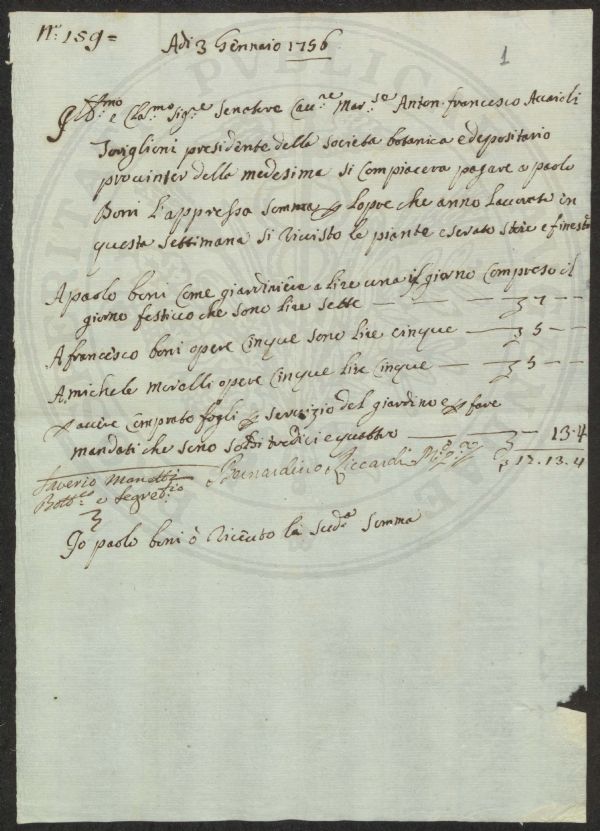 N.o 159 =
Adi 3 Gennaio 1756
1
Ill.mo e Clar.mo Sig.re Senatore Cav.re Mar.se Anton francesco Acciaioli
Toriglioni presidente della Societa botanica e depositario
prouinter della medesima si Compiacera pagare a paolo
Boni l'appressa Somma p lopre che anno lauorato in
questa settimana si riuisto le piante e serato stoie e finestre
A paolo boni Come giardiniere a lire una il giorno Compreso il
giorno festiuo che sono lire sette — — — 7 — —
A francesco boni opere Cinque sono lire Cinque — 5 — —
A michele morelli opere Cinque lire Cinque — 5 — —
p auere Comprato fogli p seruizio del giardino e p fare
mandati che sono soldi tredici e quattro — 13.4
17.13.4
Saverio Manetti Bernardino Riccardi
Bott.co e Segret.rio
Io paolo boni ò riceuto la sud.a Somma